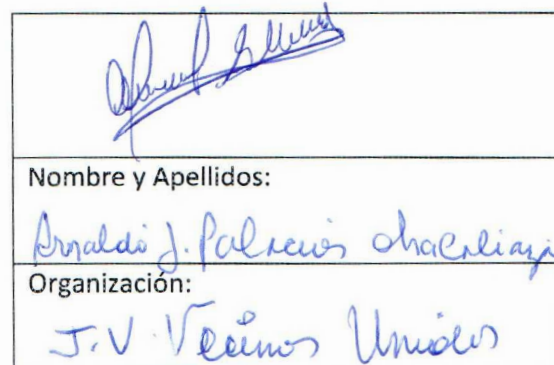 Nombre y Apellidos:
Arnaldo J. Palacios
Organización:
J.V. Vecinos Unidos